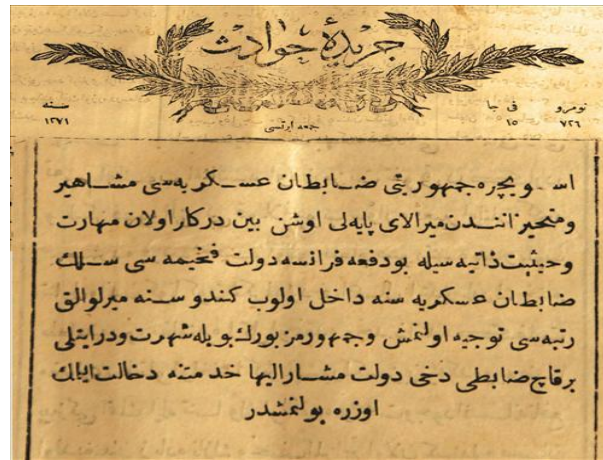 جريدۀ حوادث
نومرو ٧٢٦
فی جا ١٥
سنه ١٢٧١
جمعه ايرتسی
اسويچره جمهوريتی ضابطان عسكريه‌سی مشاهير
ومتحيزانندن ميرالای پايه‌لی اوشن بين دركار اولان مهارت
وحيثيت ذاتيه سيله بودفعه فرانسه دولت فخيمه سی سلك
ضابطان عسكريه سنه داخل اولوب كندو سنه ميرلوالق
رتبه‌سی توجيه اولنمش وجمهورمزبورك بويله شهرت ودرايتلی
برقاچ ضابطی دخی دولت مشاراليها خدمتنه دخالت ايلمك
اوزره بولنمشدر